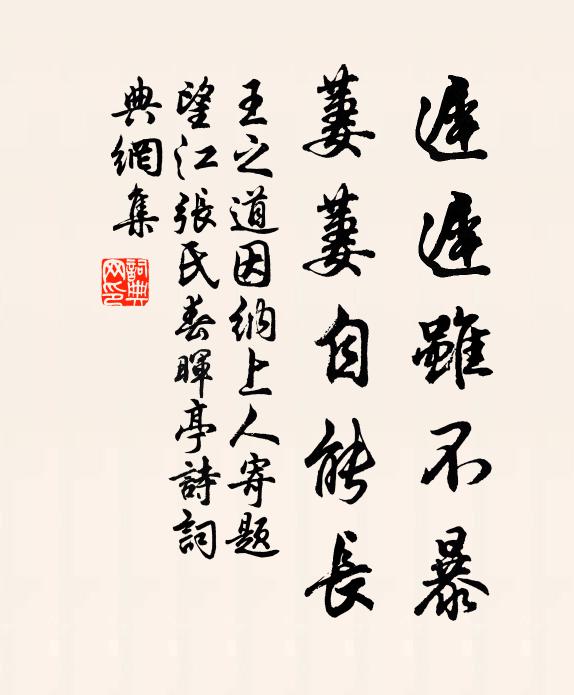 遲遲雖不暴
萋萋自能長
王之道因納上人寄題
望江張氏春暉亭詩詞
典網集
詞典網印